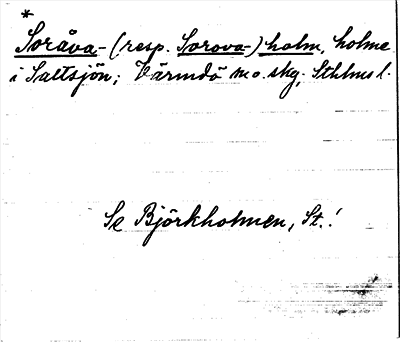 *
Soråva- (resp. Sorova-) holm, holme
i Saltsjön; Värmdö m.o. skg; Sthlms l.
Se Björkholmen, St.!